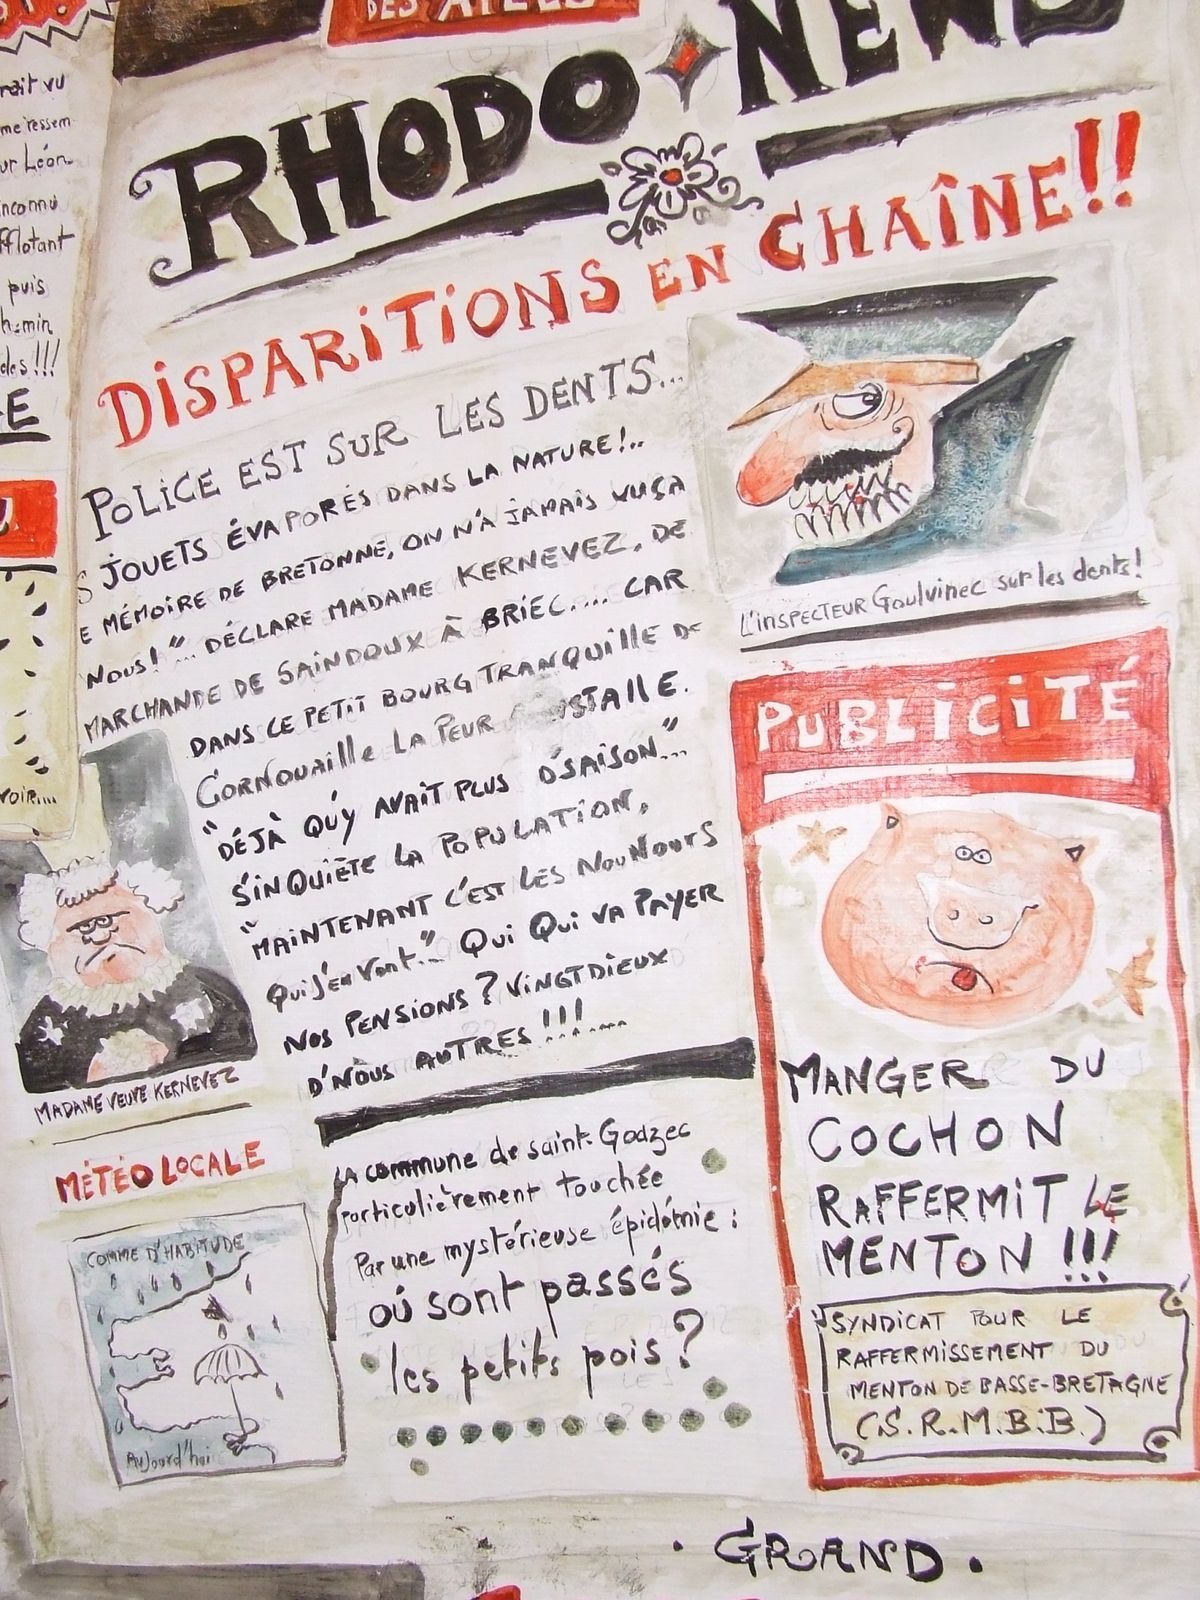 DES AILES
RHODO NEWS
DISPARITIONS EN CHAÎNE!!
POLICE EST SUR LES DENTS...
S JOUETS ÉVAPORÉS DANS LA NATURE!..
E MÉMOIRE DE BRETONNE, ON N'A JAMAIS VUSA
NOUS!"... DÉCLARE MADAME KERNEVEZ, DE
MARCHANDE DE SAINDOUX À BRIEC.... CAR
DANS CE PETIT BOURG TRANQUILLE DE
CORNOUAILLE LA PEUR STALLE.
"DÉJÀ QU'Y AVAIT PLUS D'SAISON"...
S'INQUIÈTE LA POPULATION,
"MAINTENANT C'EST LES NOUNOURS
QUI S'EN VONT." QUI QUI VA PAYER
NOS PENSIONS? VINGTDIEUX
D'NOUS AUTRES!!!....
L'INSPECTEUR Goulvinec sur les dents!
MADAME VEUVE KERNEVEZ
MÉTÉO LOCALE
COMME D'HABITUDE
Aujourd'hui
LA commune de saint-Godzec
particulièrement touchée
Par une mystérieuse épidémie:
où sont passés
les petits pois?
PUBLICITÉ
MANGER DU
COCHON
RAFFERMIT LE
MENTON!!!
SYNDICAT POUR LE
RAFFERMISSEMENT DU
MENTON DE BASSE-BRETAGNE
(S.R.M.B.B.)
. GRAND .
rait vu
me ressem
ur Léon
inconnu
fflotant
puis
hemin
des!!!
E
U
VOIR....